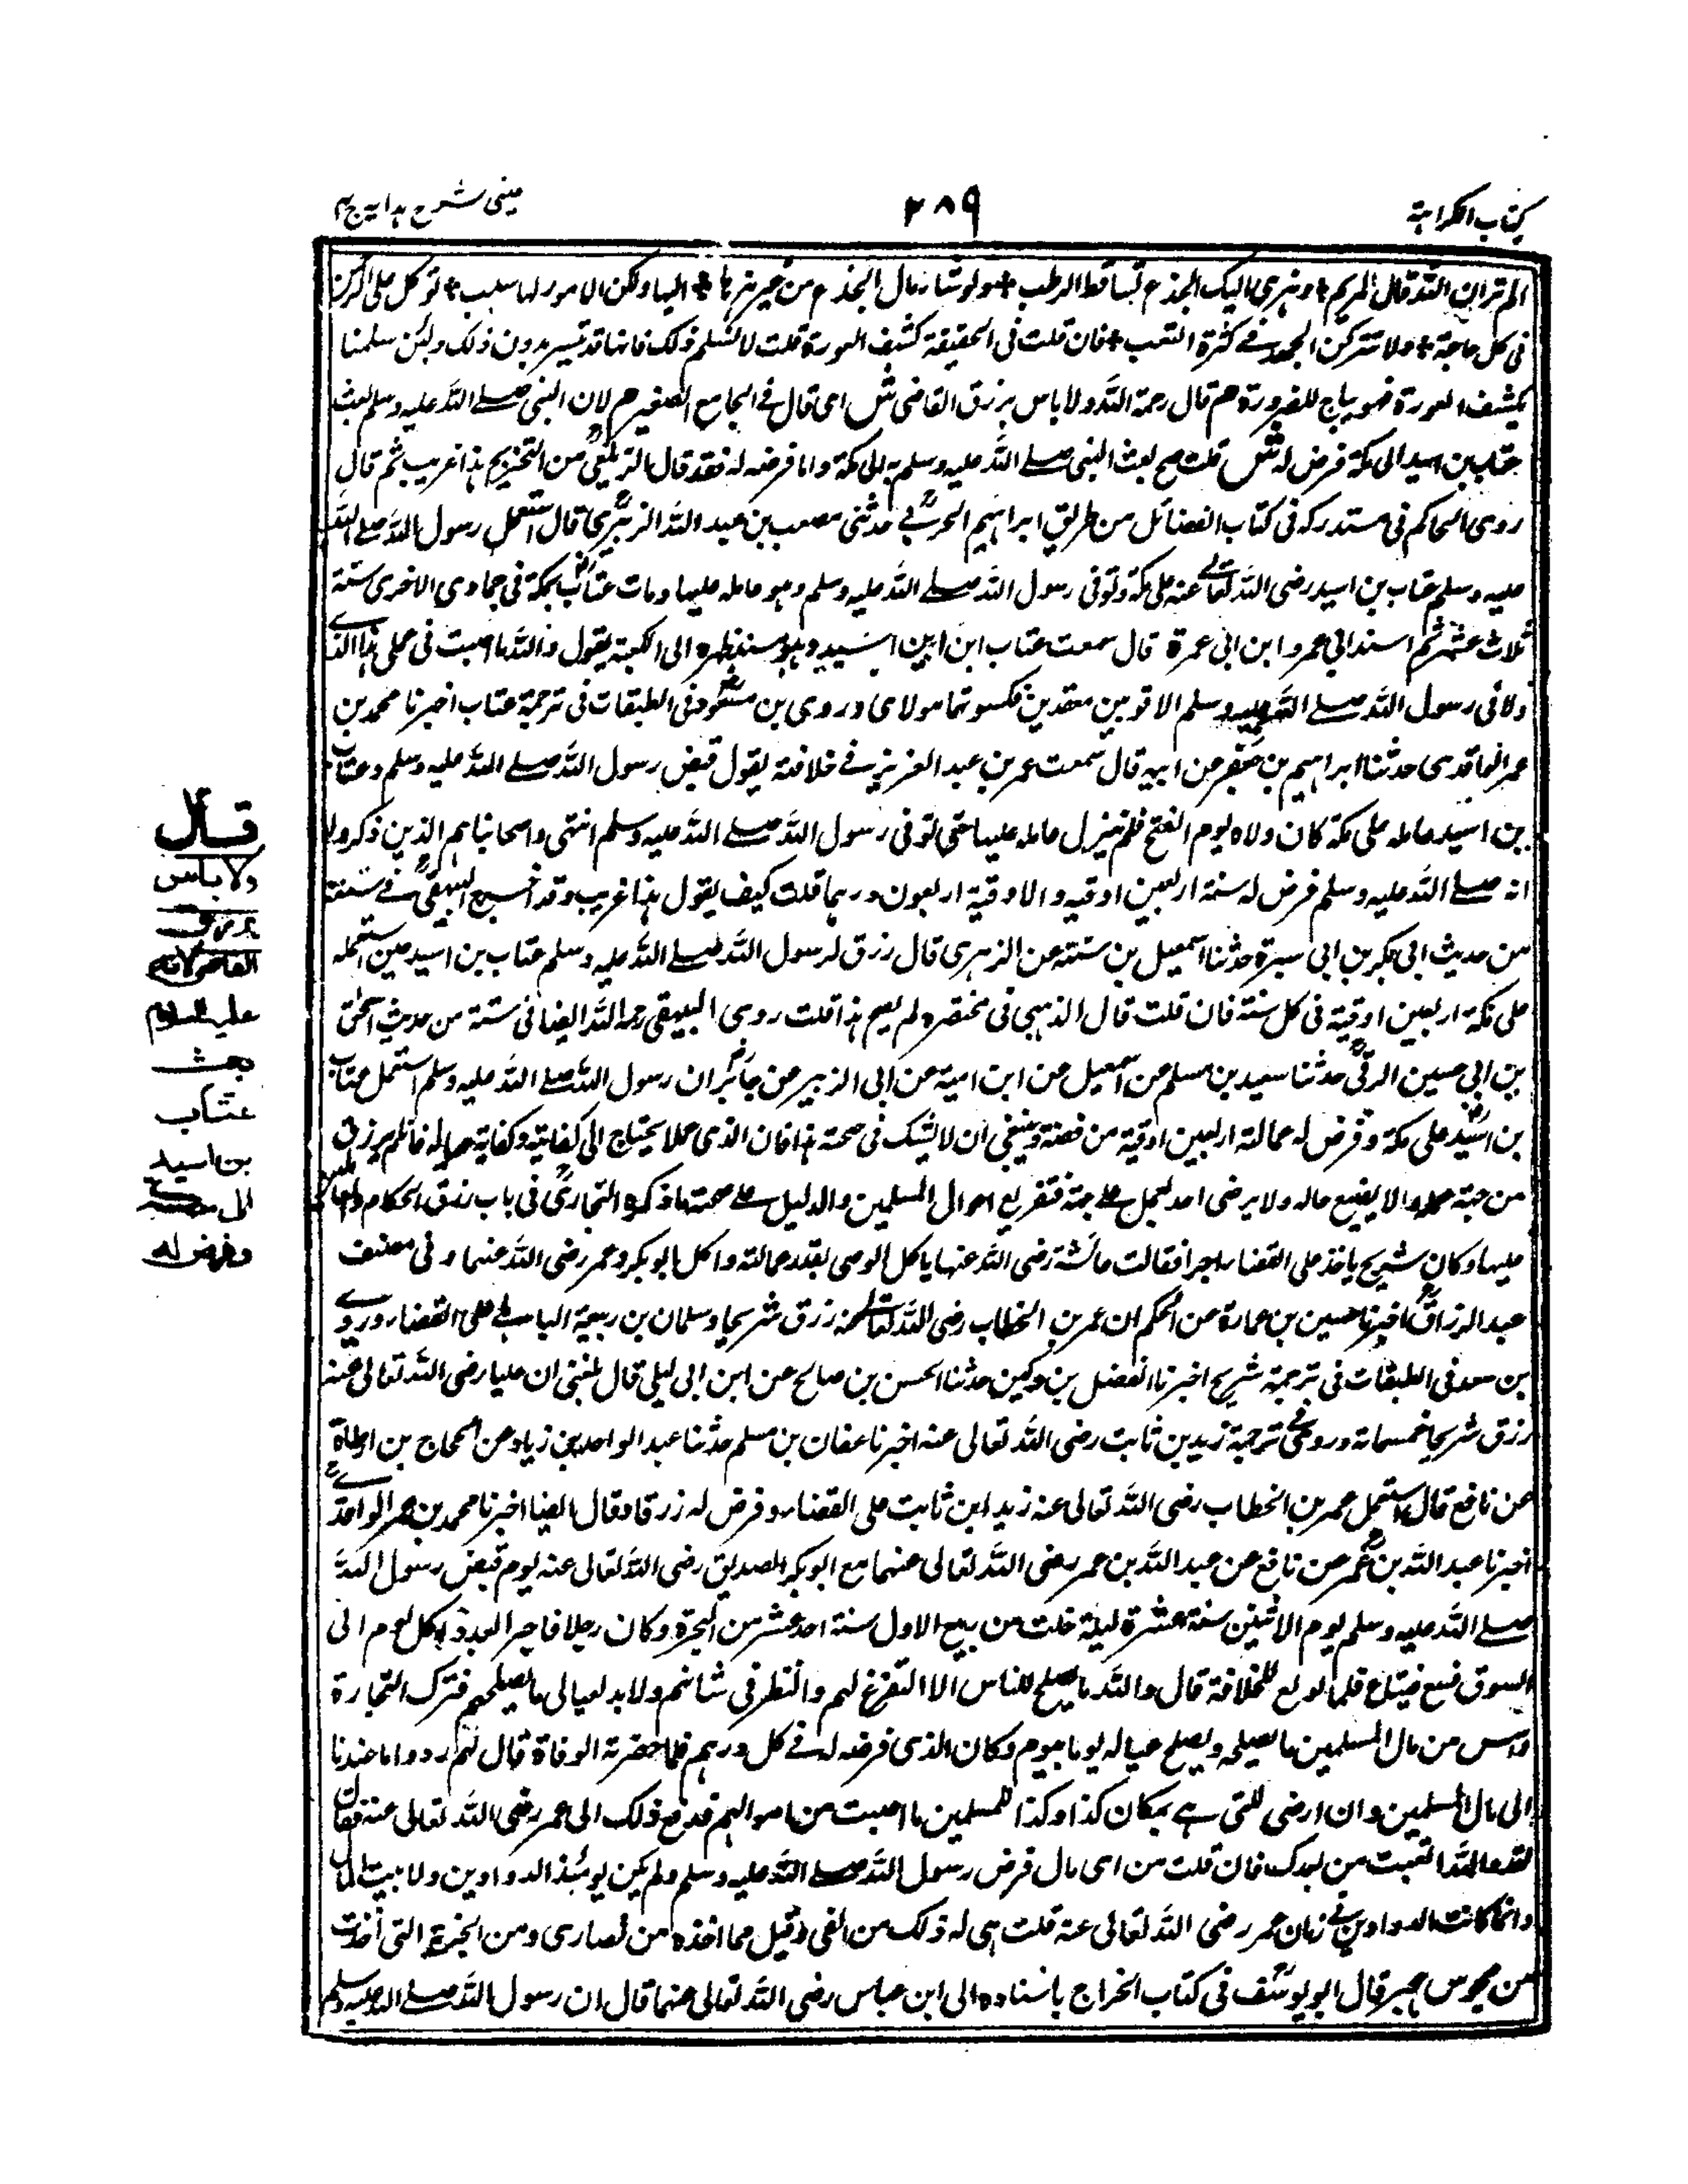 كتاب الكراهة
٢٨٩
عينى شرح هدايه ج ٤
الم تر ان الله قال لمريم * وهزى اليك الجذع تساقط الرطب * ولو شاء مال الجذع من غير هزها * اليها ولكن الامور لها سبب * توكل على الرحمن
فى كل حاجة * ولا تتركن الجهد فى كثرة التعب * فان قلت فى الحقيقة كشف العورة قلت لا نسلم ذلك فانها قد تيسر بدون ذلك ولئن سلمنا
كشف العورة فهو يباح للضرورة م قال رحمه الله ولا باس برزق القاضى ش اى قال فى الجامع الصغير م لان النبى صلى الله عليه وسلم بعث
عتاب بن اسيد الى مكة فرض له ش قلت صح بعث النبى صلى الله عليه وسلم به الى مكة واما فرضه له فقد قال الزيلعى من التخريج هذا غريب ثم قال
روى الحاكم فى مستدركه فى كتاب الفضائل من طريق ابراهيم الحربى حدثنى مصعب بن عبد الله الزبيرى قال استعمل رسول الله صلى الله
عليه وسلم عتاب بن اسيد رضى الله تعالى عنه على مكة وتوفى رسول الله صلى الله عليه وسلم وهو عامله عليها ومات عتاب بمكة فى جمادى الاخرى سنة
ثلاث عشر ثم اسند الى عمرو ابن ابى عمرة قال سمعت عتاب ابن اسيد وهو مسند ظهره الى الكعبة يقول والله ما اصبت فى عملى هذا الذى
ولانى رسول الله صلى الله عليه وسلم الا ثوبين معقدين فكسوتهما مولاى وروى بن سعد فى الطبقات فى ترجمة عتاب اخبرنا محمد بن
عمر الواقدى حدثنا ابراهيم بن جعفر عن ابيه قال سمعت عمر بن عبد العزيز فى خلافته يقول قبض رسول الله صلى الله عليه وسلم وعتاب
بن اسيد عامله على مكة كان ولاه يوم الفتح فلم يزل عامله عليها حتى توفى رسول الله صلى الله عليه وسلم انتهى واصحابنا هم الذين ذكروا
انه صلى الله عليه وسلم فرض له سنة اربعين اوقيه والاوقية اربعون درهما قلت كيف يقول هذا غريب وقد اخرج البيهقى فى سننه
من حديث ابى بكر بن ابى سبرة حدثنا اسمعيل بن ستة عن الزهرى قال رزق لرسول الله صلى الله عليه وسلم عتاب بن اسيد حين استعمله
على مكة اربعين اوقية فى كل سنة فان قلت قال الذهبى فى مختصره لم يصح هذا قلت روى البيهقى رحمه الله ايضا فى سننه من حديث اسحق
بن ابى حسين الرقى حدثنا سعيد بن مسلم عن اسمعيل عن ابن امية عن ابى الزبير عن جابر ان رسول الله صلى الله عليه وسلم استعمل عتاب
بن اسيد على مكة وفرض له عمالة اربعين اوقية من فضة وينبغى ان لا يشك فى صحة هذا فان الذى عملا يحتاج الى كفايته وكفاية عياله فان لم يرزق
من جهة عمله والا يضيع حاله ولا يرضى احد لعمل على جهة فتفريع اموال المسلمين والدليل على صحته ما ذكره البخارى فى باب رزق الحكام والعاملين
عليها وكان شريح ياخذ على القضاء اجرا فقالت عائشة رضى الله عنها ياكل الوصى بقدر عمالته واكل ابو بكر وعمر رضى الله عنهما وفى مصنف
عبد الرزاق اخبرنا حسين بن عمارة عن الحكم ان عمر بن الخطاب رضى الله تعالى عنه رزق شريحا وسلمان بن ربيعة الباهلى على القضاء وروى
بن سعد فى الطبقات فى ترجمة شريح اخبرنا الفضل بن دكين حدثنا الحسن بن صالح عن ابن ابى ليلى قال بلغنى ان عليا رضى الله تعالى عنه
رزق شريحا خمسمائة وروى فى ترجمة زيد بن ثابت رضى الله تعالى عنه اخبرنا عفان بن مسلم حدثنا عبد الواحد بن زياد عن الحجاج بن ارطاة
عن نافع قال استعمل عمر بن الخطاب رضى الله تعالى عنه زيد ابن ثابت على القضاء وفرض له رزقا وقال ايضا اخبرنا محمد بن عمر الواقدى
اخبرنا عبد الله بن عمر عن نافع عن عبد الله بن عمر رضى الله تعالى عنهما مع ابو بكر الصديق رضى الله تعالى عنه يوم قبض رسول الله
صلى الله عليه وسلم يوم الاثنين سنة عشرة ليلة خلت من ربيع الاول سنة احد عشر من الهجرة وكان رجلا تاجرا يغدو كل يوم الى
السوق فيبيع فيبتاع فلما بويع للخلافة قال والله ما يصلح للناس الا التفرغ لهم والنظر فى شانهم ولا بد لعيالى ما يصلحهم فترك التجارة
من مال المسلمين ما يصلحه ويصلح عياله يوما بيوم وكان الذى فرضه له فى كل درهم فلما حضرته الوفاة قال لهم ردوا ما عندنا
الى مال المسلمين وان ارضى للتى هى بمكان كذا وكذا للمسلمين ما اصبت من اموالهم فدفع ذلك الى عمر رضى الله تعالى عنه فقال
لقد والله اتعبت من بعدك فان قلت من اى مال فرض رسول الله صلى الله عليه وسلم ولم يكن يومئذ الدواوين ولا بيت المال
وانما كانت الدواوين فى زمان عمر رضى الله تعالى عنه قلت هى له ذلك من الفى وقيل مما اخذه من نصارى ومن الجزية التى اخذت
من مجوس هجر قال ابو يوسف فى كتاب الخراج باسناده الى ابن عباس رضى الله تعالى عنهما قال ان رسول الله صلى الله عليه وسلم
قال
ولا باس
برزق
القاضى لانه
عليه السلام
بعث
عتاب
بن اسيد
الى مكة
وفرض له